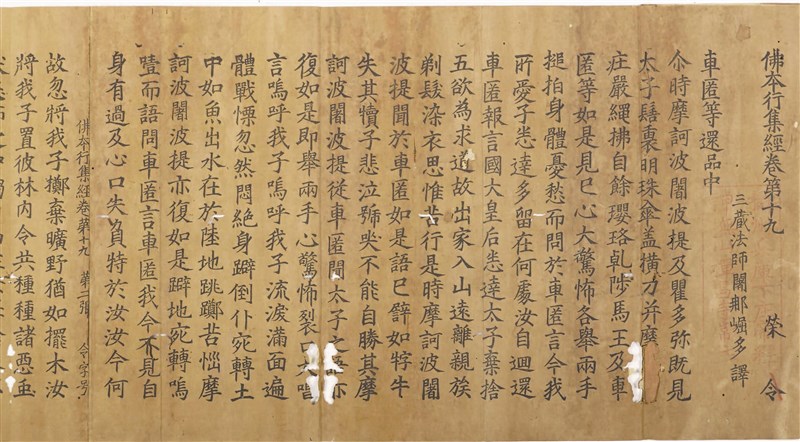 佛本行集經卷第十九
榮 令
三藏法師闍那崛多譯
車匿等還品中
尒時摩訶波闍波提及瞿多弥既見
太子髻裏明珠傘盖横刀并麼
莊嚴繩拂自餘瓔珞乹陟馬王及車
匿等如是見已心大驚怖各舉兩手
搥拍身體憂愁而問於車匿言今我
所愛子悉達多留在何處汝自迴還
車匿報言國大皇后悉達太子棄捨
五欲為求道故出家入山遠離親族
剃髮染衣思惟苦行是時摩訶波闍
波提聞於車匿如是語已譬如牸牛
失其犢子悲泣號哭不能自勝其摩
訶波闍波提從車匿聞太子之 亦
復如是即舉兩手心驚怖裂口大唱
言嗚呼我子嗚呼我子流淚滿面遍
體戰慄忽然悶絕身躃倒仆宛轉土
中如魚出水在於陸地跳躑苦惱摩
訶波闍波提亦復如是躃地宛轉嗚
噎而語問車匿言車匿我今不見自
身有過及心口失負特於汝汝今何
佛本行集經卷第十九 第二張 令字号
故忽將我子擲棄曠野猶如擺木汝
將我子置彼林内令共種種諸惡虫